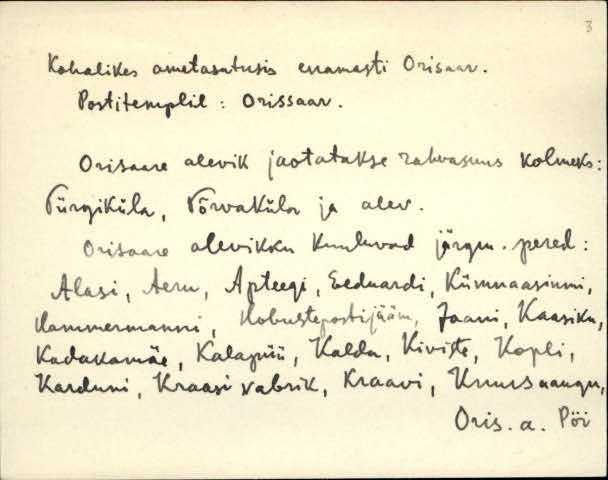 3
Kohalikes ametasutusis enamasti Orisaar.
Postitemplil : Orissaar.
Orisaare alevik jaotatakse rahvasuus kolmeks:
Pürgiküla, Võrvaküla ja alev.
Orisaare alevikku kuuluvad järgm. pered :
Alasi, Aeru, Apteegi, Eeduardi, Kümnaasiumi,
Hammermanni, Hobustepostijaam, Jaani, Kaasiku,
Kadakamäe, Kalapüü, Kaldu, Kiviste, Kopli,
Karduni, Kraasivabrik, Kraavi, Kruusaaugu,
Oris. a. Pöi